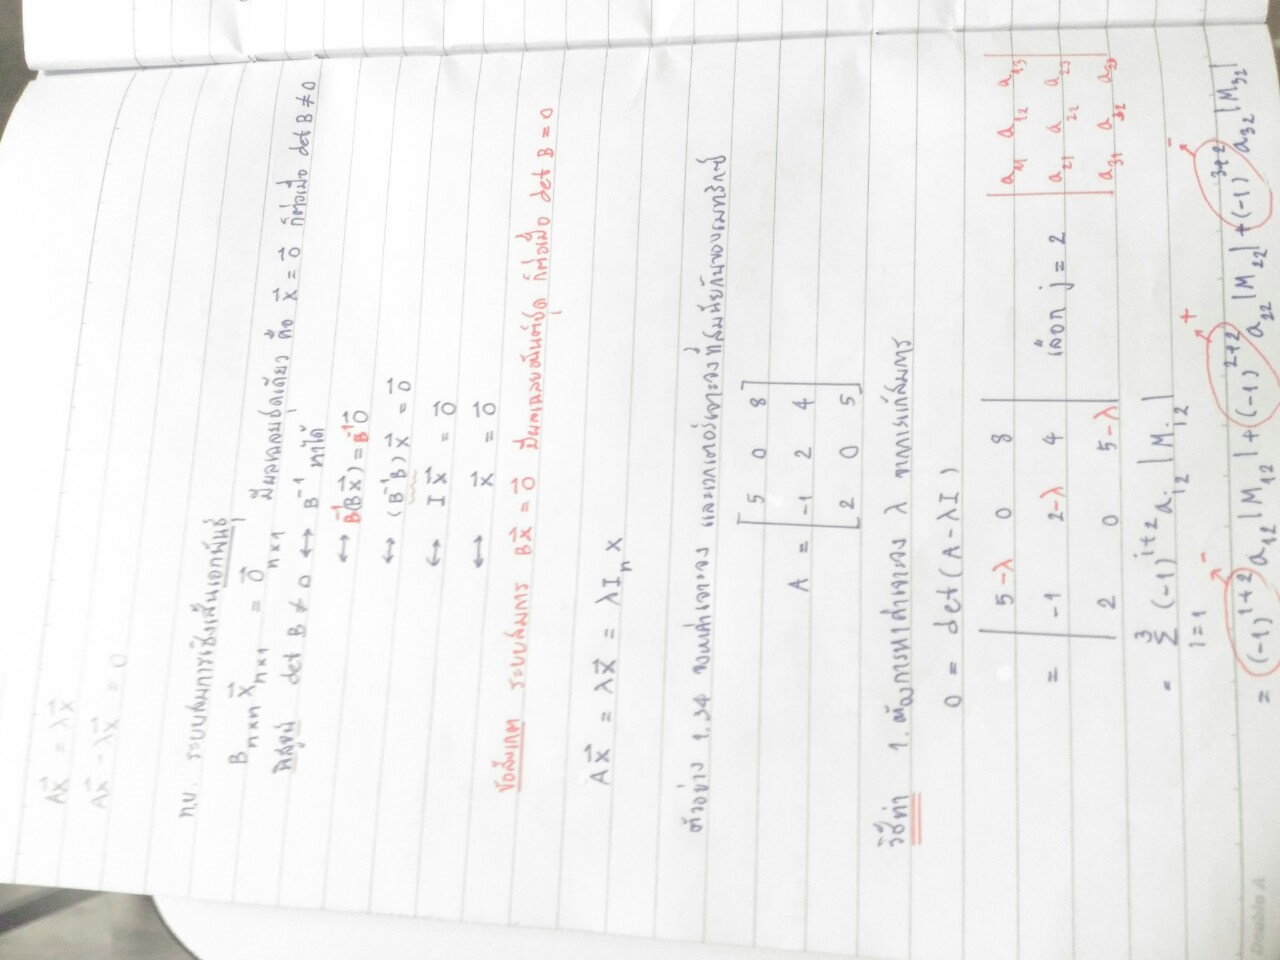 Ax⃗ = λx⃗
Ax⃗ - λx⃗ = 0
ท.บ. ระบบสมการเชิงเส้นเอกพันธุ์
B_{n×n} x⃗_{n×1} = 0⃗_{n×1} มีผลเฉลยชุดเดียว คือ x⃗ = 0⃗ ก็ต่อเมื่อ det B ≠ 0
พิสูจน์ det B ≠ 0 ↔ B⁻¹ หาได้
↔ B⁻¹(Bx⃗) = B⁻¹0⃗
↔ (B⁻¹B)x⃗ = 0⃗
↔ Ix⃗ = 0⃗
↔ x⃗ = 0⃗
ข้อสังเกต ระบบสมการ Bx⃗ = 0⃗ มีผลเฉลยอนันต์ชุด ก็ต่อเมื่อ det B = 0
Ax⃗ = λx⃗ = λI_n x
ตัวอย่าง 1.34 จงหาค่าเจาะจง และเวกเตอร์เจาะจงที่สมนัยกันของเมทริกซ์
5 0 8
A = -1 2 4
2 0 5
วิธีทำ 1. ต้องการหาค่าเจาะจง λ จากการแก้สมการ
0 = det(A - λI)
5-λ 0 8 a₁₁ a₁₂ a₁₃
= -1 2-λ 4 เลือก j = 2 a₂₁ a₂₂ a₂₃
2 0 5-λ a₃₁ a₃₂ a₃₃
= Σ_{i=1}^{3} (-1)^{i+2} a_{i2} |M_{i2}|
- + -
= (-1)^{1+2} a₁₂ |M₁₂| + (-1)^{2+2} a₂₂ |M₂₂| + (-1)^{3+2} a₃₂ |M₃₂|
Double A